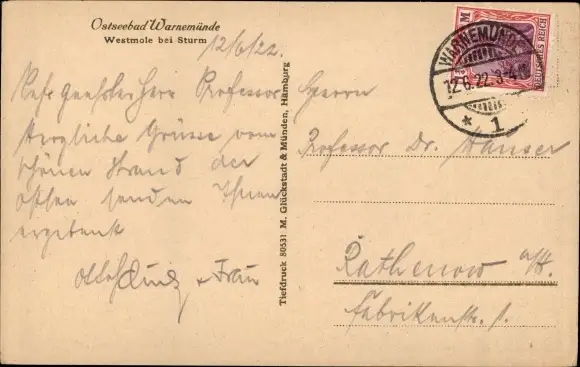 Ostseebad Warnemünde
Westmole bei Sturm
12/6/22.
Sehr geehrter Herr Professor
Herzliche Grüsse vom
schönen Strand der
Ostsee senden Ihnen
ergebenst
Otto + Frau
Tiefdruck 80531 M. Glückstadt & Münden, Hamburg
DEUTSCHES REICH
M
WARNEMÜNDE
12.6.22. 3-4 N
* 1
Herrn
Professor Dr. Hauser
Rathenow a/H.
Fabrikenstr. 1.